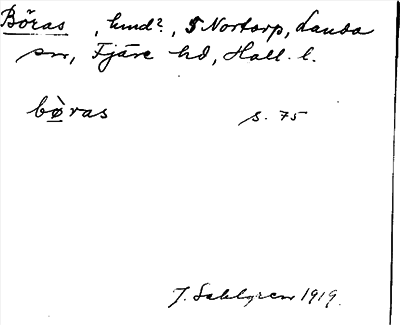 Böras, hmd?, 5 Nortorp, Landa
sn, Fjäre hd, Hall. l.
bòras s. 75
J. Sahlgren 1919.